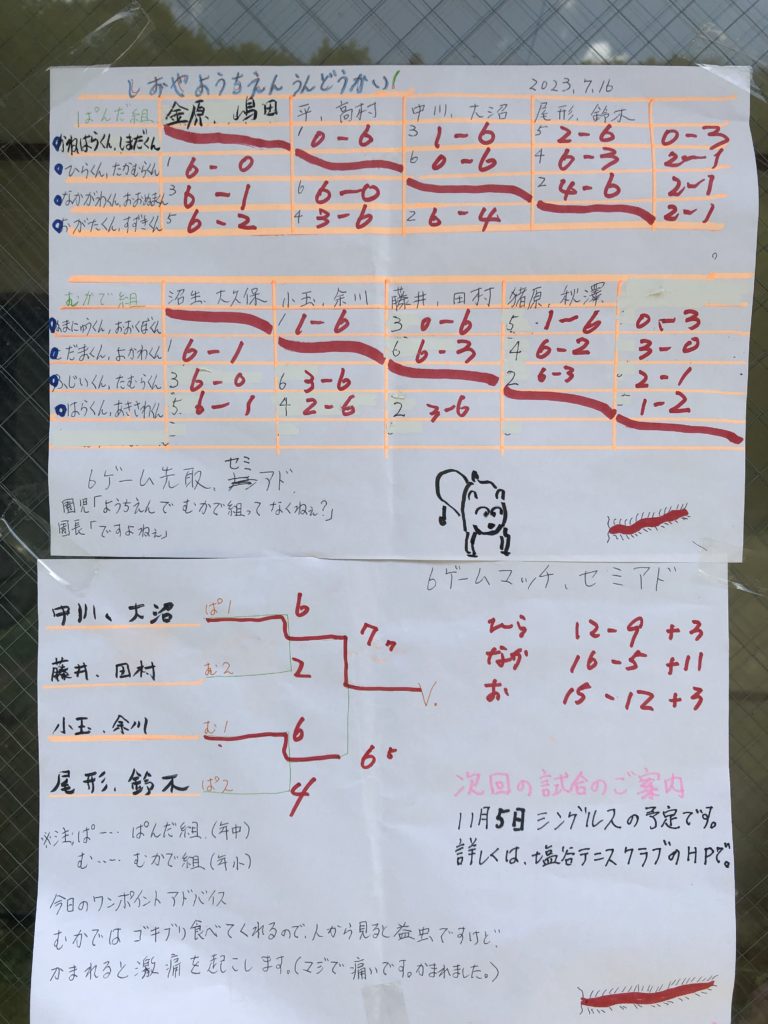 しおやようちえん うんどうかい！ 2023,7.16
ぱんだ組 金原、嶋田 平、高村 中川、大沼 尾形、鈴木
かねはらくん,しまだくん 1 0-6 3 1-6 5 2-6 0-3
ひらくん,たかむらくん 1 6-0 6 0-6 4 6-3 2-1
なかがわくん,おおぬまくん 3 6-1 6 6-0 2 4-6 2-1
おがたくん,すずきくん 5 6-2 4 3-6 2 6-4 2-1
むかで組 沼生、大久保 小玉、余川 藤井、田村 猪原、秋澤
ぬまにゅうくん,おおくぼくん 1 1-6 3 0-6 5 1-6 0-3
こだまくん,よかわくん 1 6-1 6 6-3 4 6-2 3-0
ふじいくん,たむらくん 3 6-0 6 3-6 2 6-3 2-1
いはらくん,あきさわくん 5 6-1 4 2-6 2 3-6 1-2
6ゲーム先取、セミアド
園児「ようちえんで むかで組って なくねぇ?」
園長「ですよねぇ」
6ゲームマッチ、セミアド
中川、大沼 ぱ1 6
藤井、田村 む2 2
小玉、余川 む1 6
尾形、鈴木 ぱ2 4
7 6 5 V.
ひら 12-9 +3
なか 16-5 +11
お 15-12 +3
次回の試合のご案内
11月5日 シングルスの予定です。
詳しくは、塩谷テニスクラブのHPで。
※注;ぱ…… ぱんだ組(年中)
む…… むかで組(年小)
今日のワンポイントアドバイス
むかでは ゴキブリ食べてくれるので、人から見ると益虫ですけど、
かまれると激痛を起こします。(マジで痛いです。かまれました。)